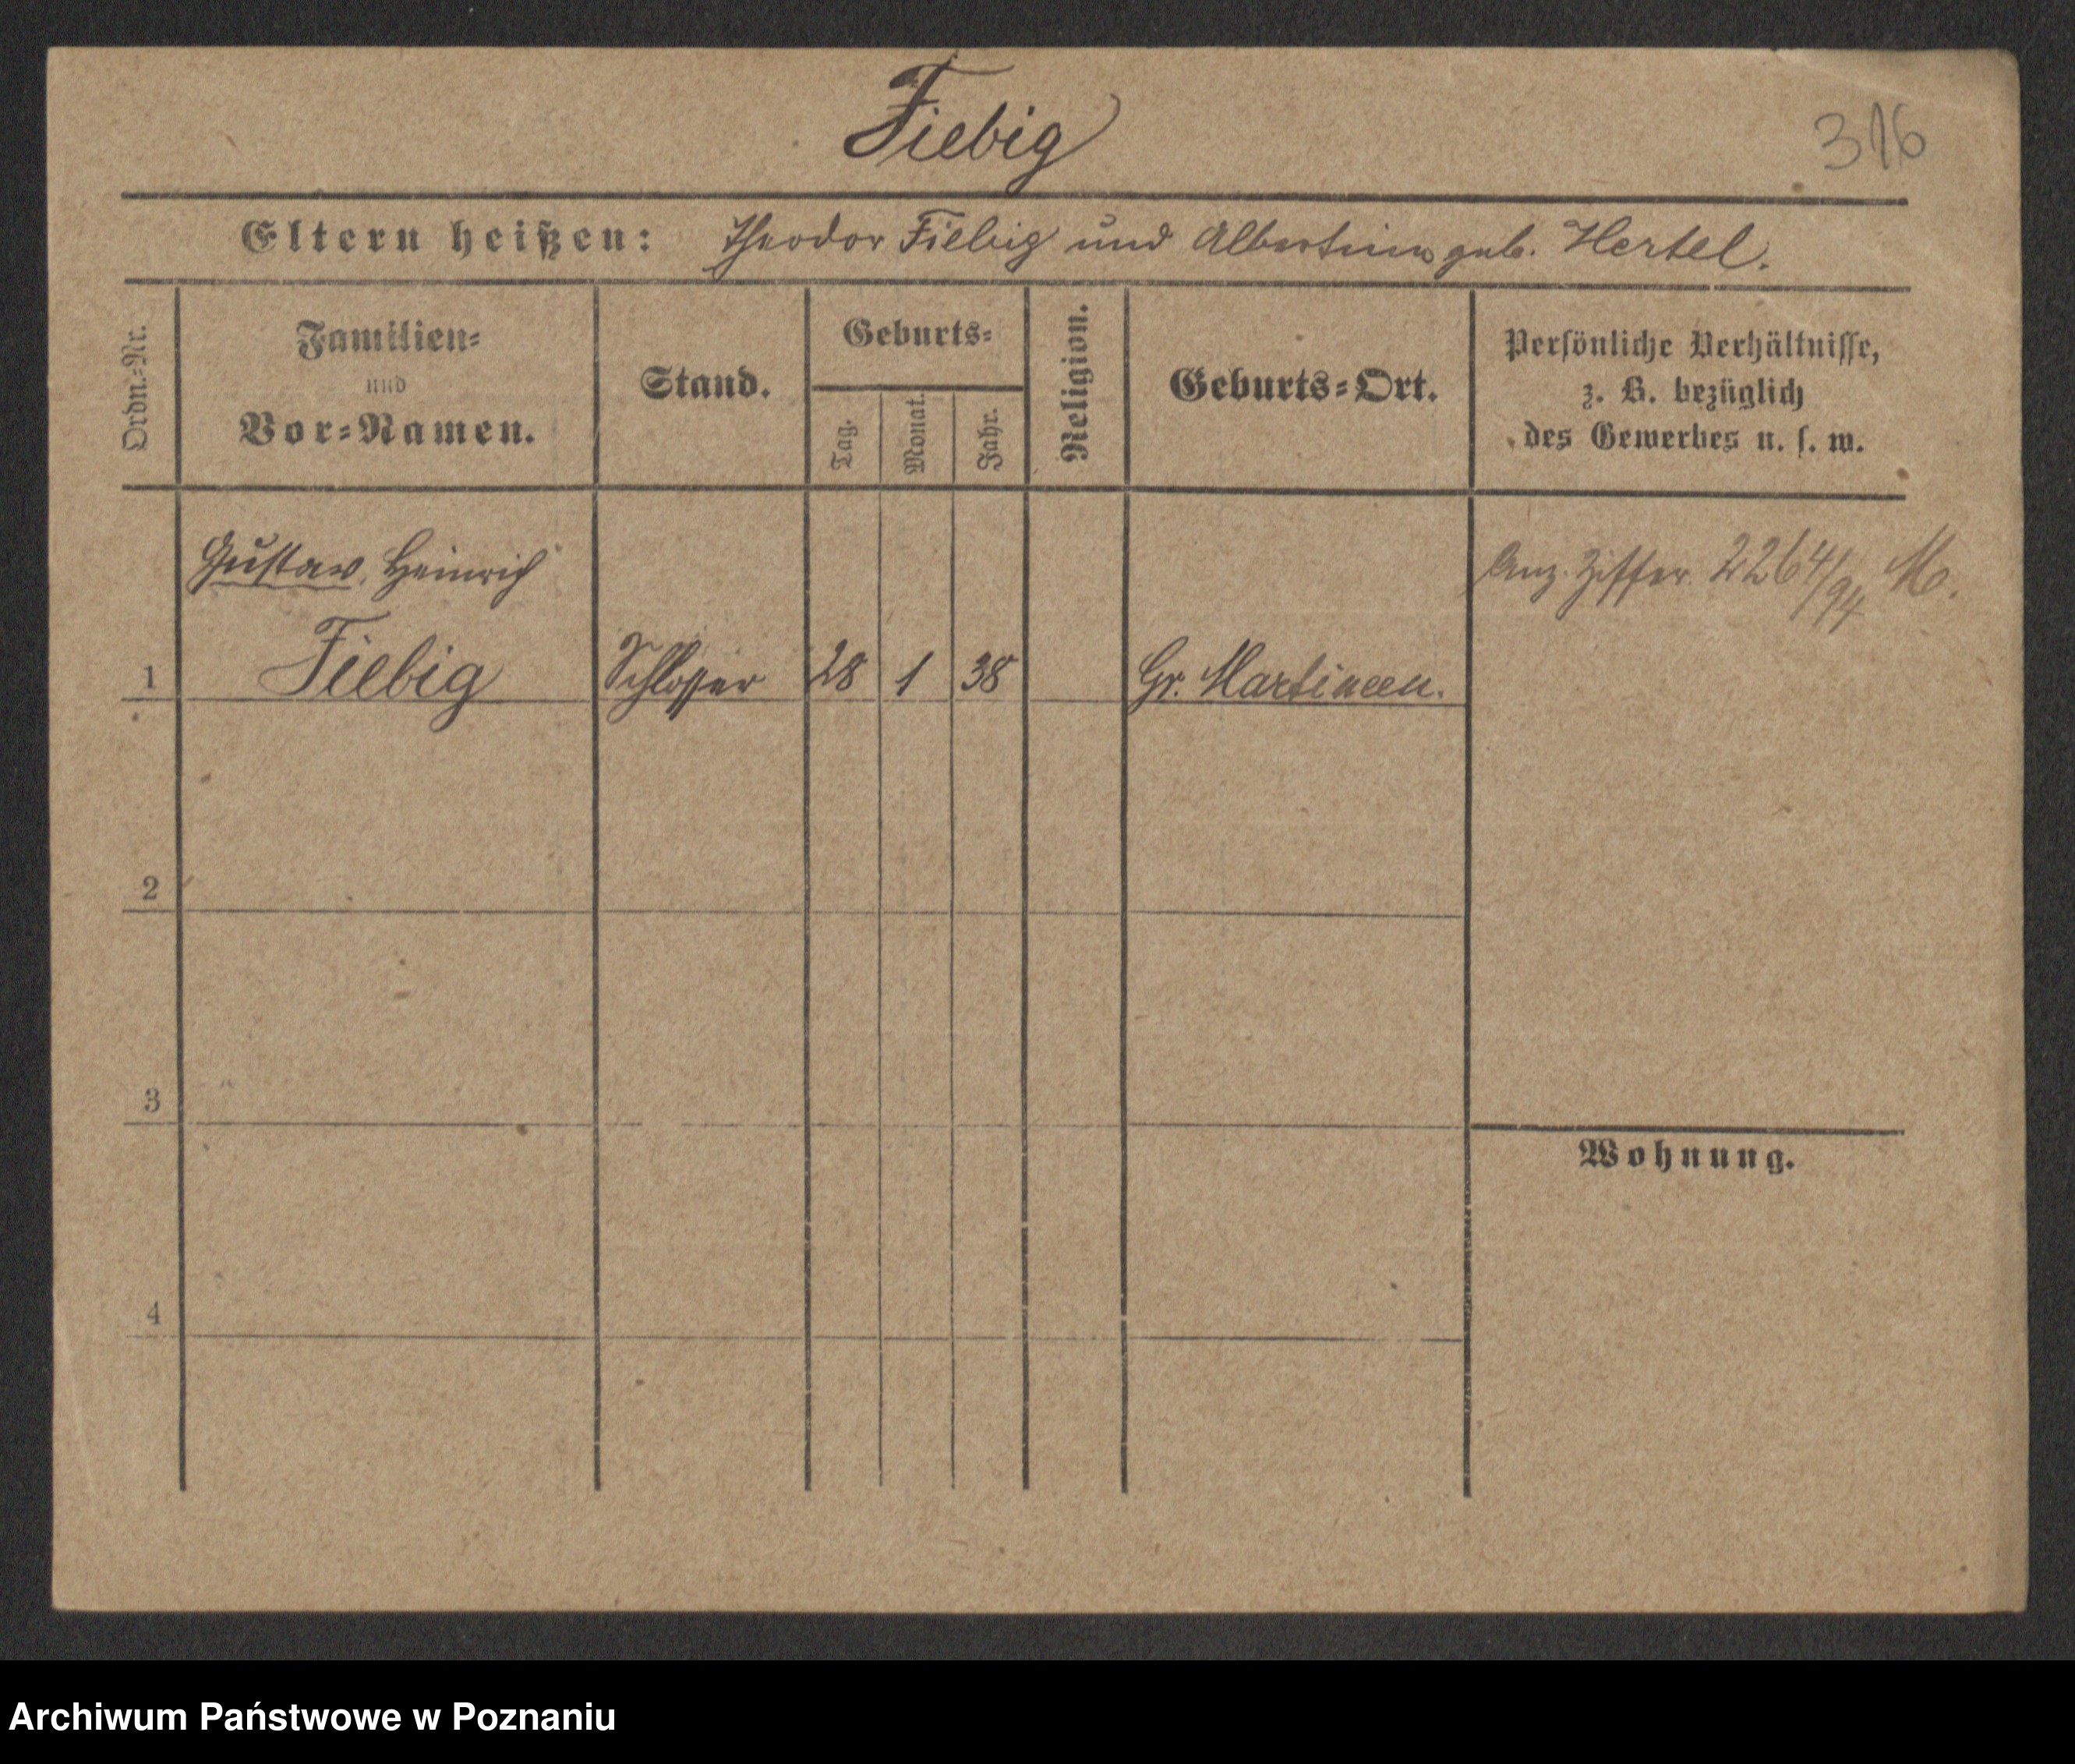 Fiebig
316
Eltern heißen: Theodor Fiebig und Albertine geb. Hertel.
Ordn.-Nr.
Familien-
und
Vor-Namen.
Stand.
Geburts-
Tag.
Monat.
Jahr.
Religion.
Geburts-Ort.
Persönliche Verhältnisse,
z. B. bezüglich
des Gewerbes u. s. w.
Gustav, Heinrich
Anz. Ziffer. 2264/94 M.
1 Fiebig Schlosser 28 1 38 Gr. Martineen.
2
3
Wohnung.
4
Archiwum Państwowe w Poznaniu